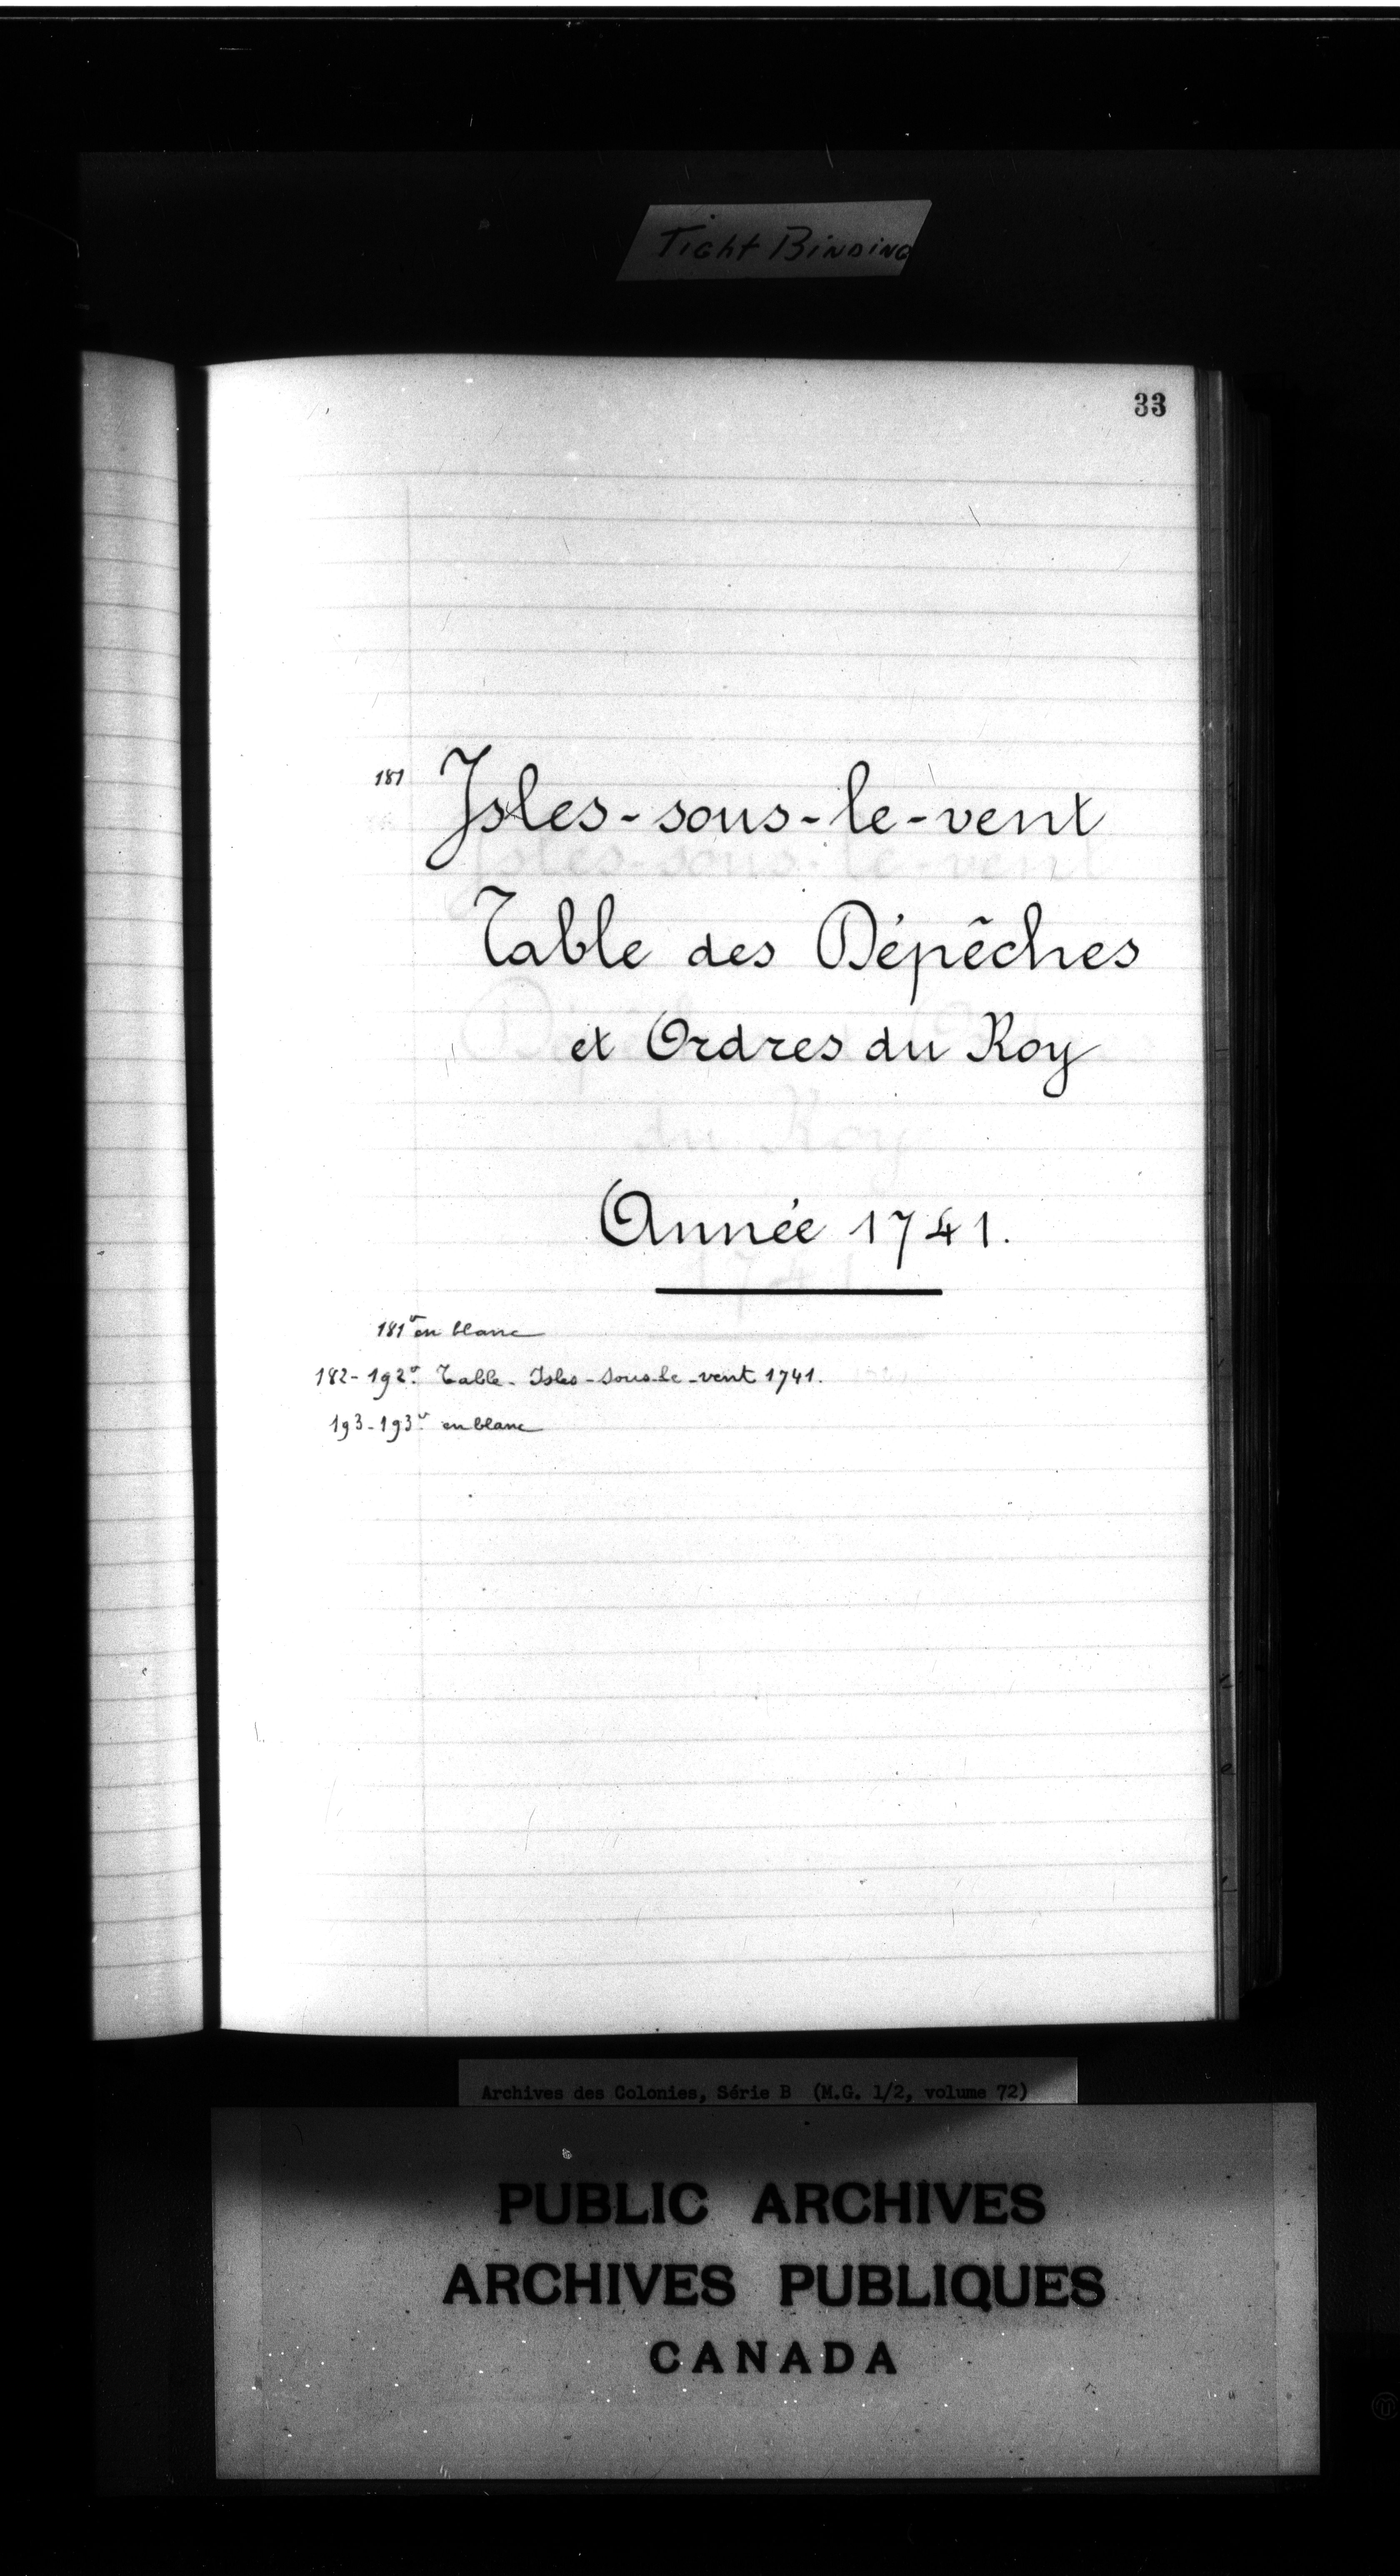 Tight Binding
33
181 Isles-sous-le-vent
Table des Dépêches
et Ordres du Roy
Année 1741.
181v en blanc
182-192v. Table. Isles-sous-le-vent 1741.
193-193v. en blanc
Archives des Colonies, Série B (M.G. 1/2, volume 72)
PUBLIC ARCHIVES
ARCHIVES PUBLIQUES
CANADA